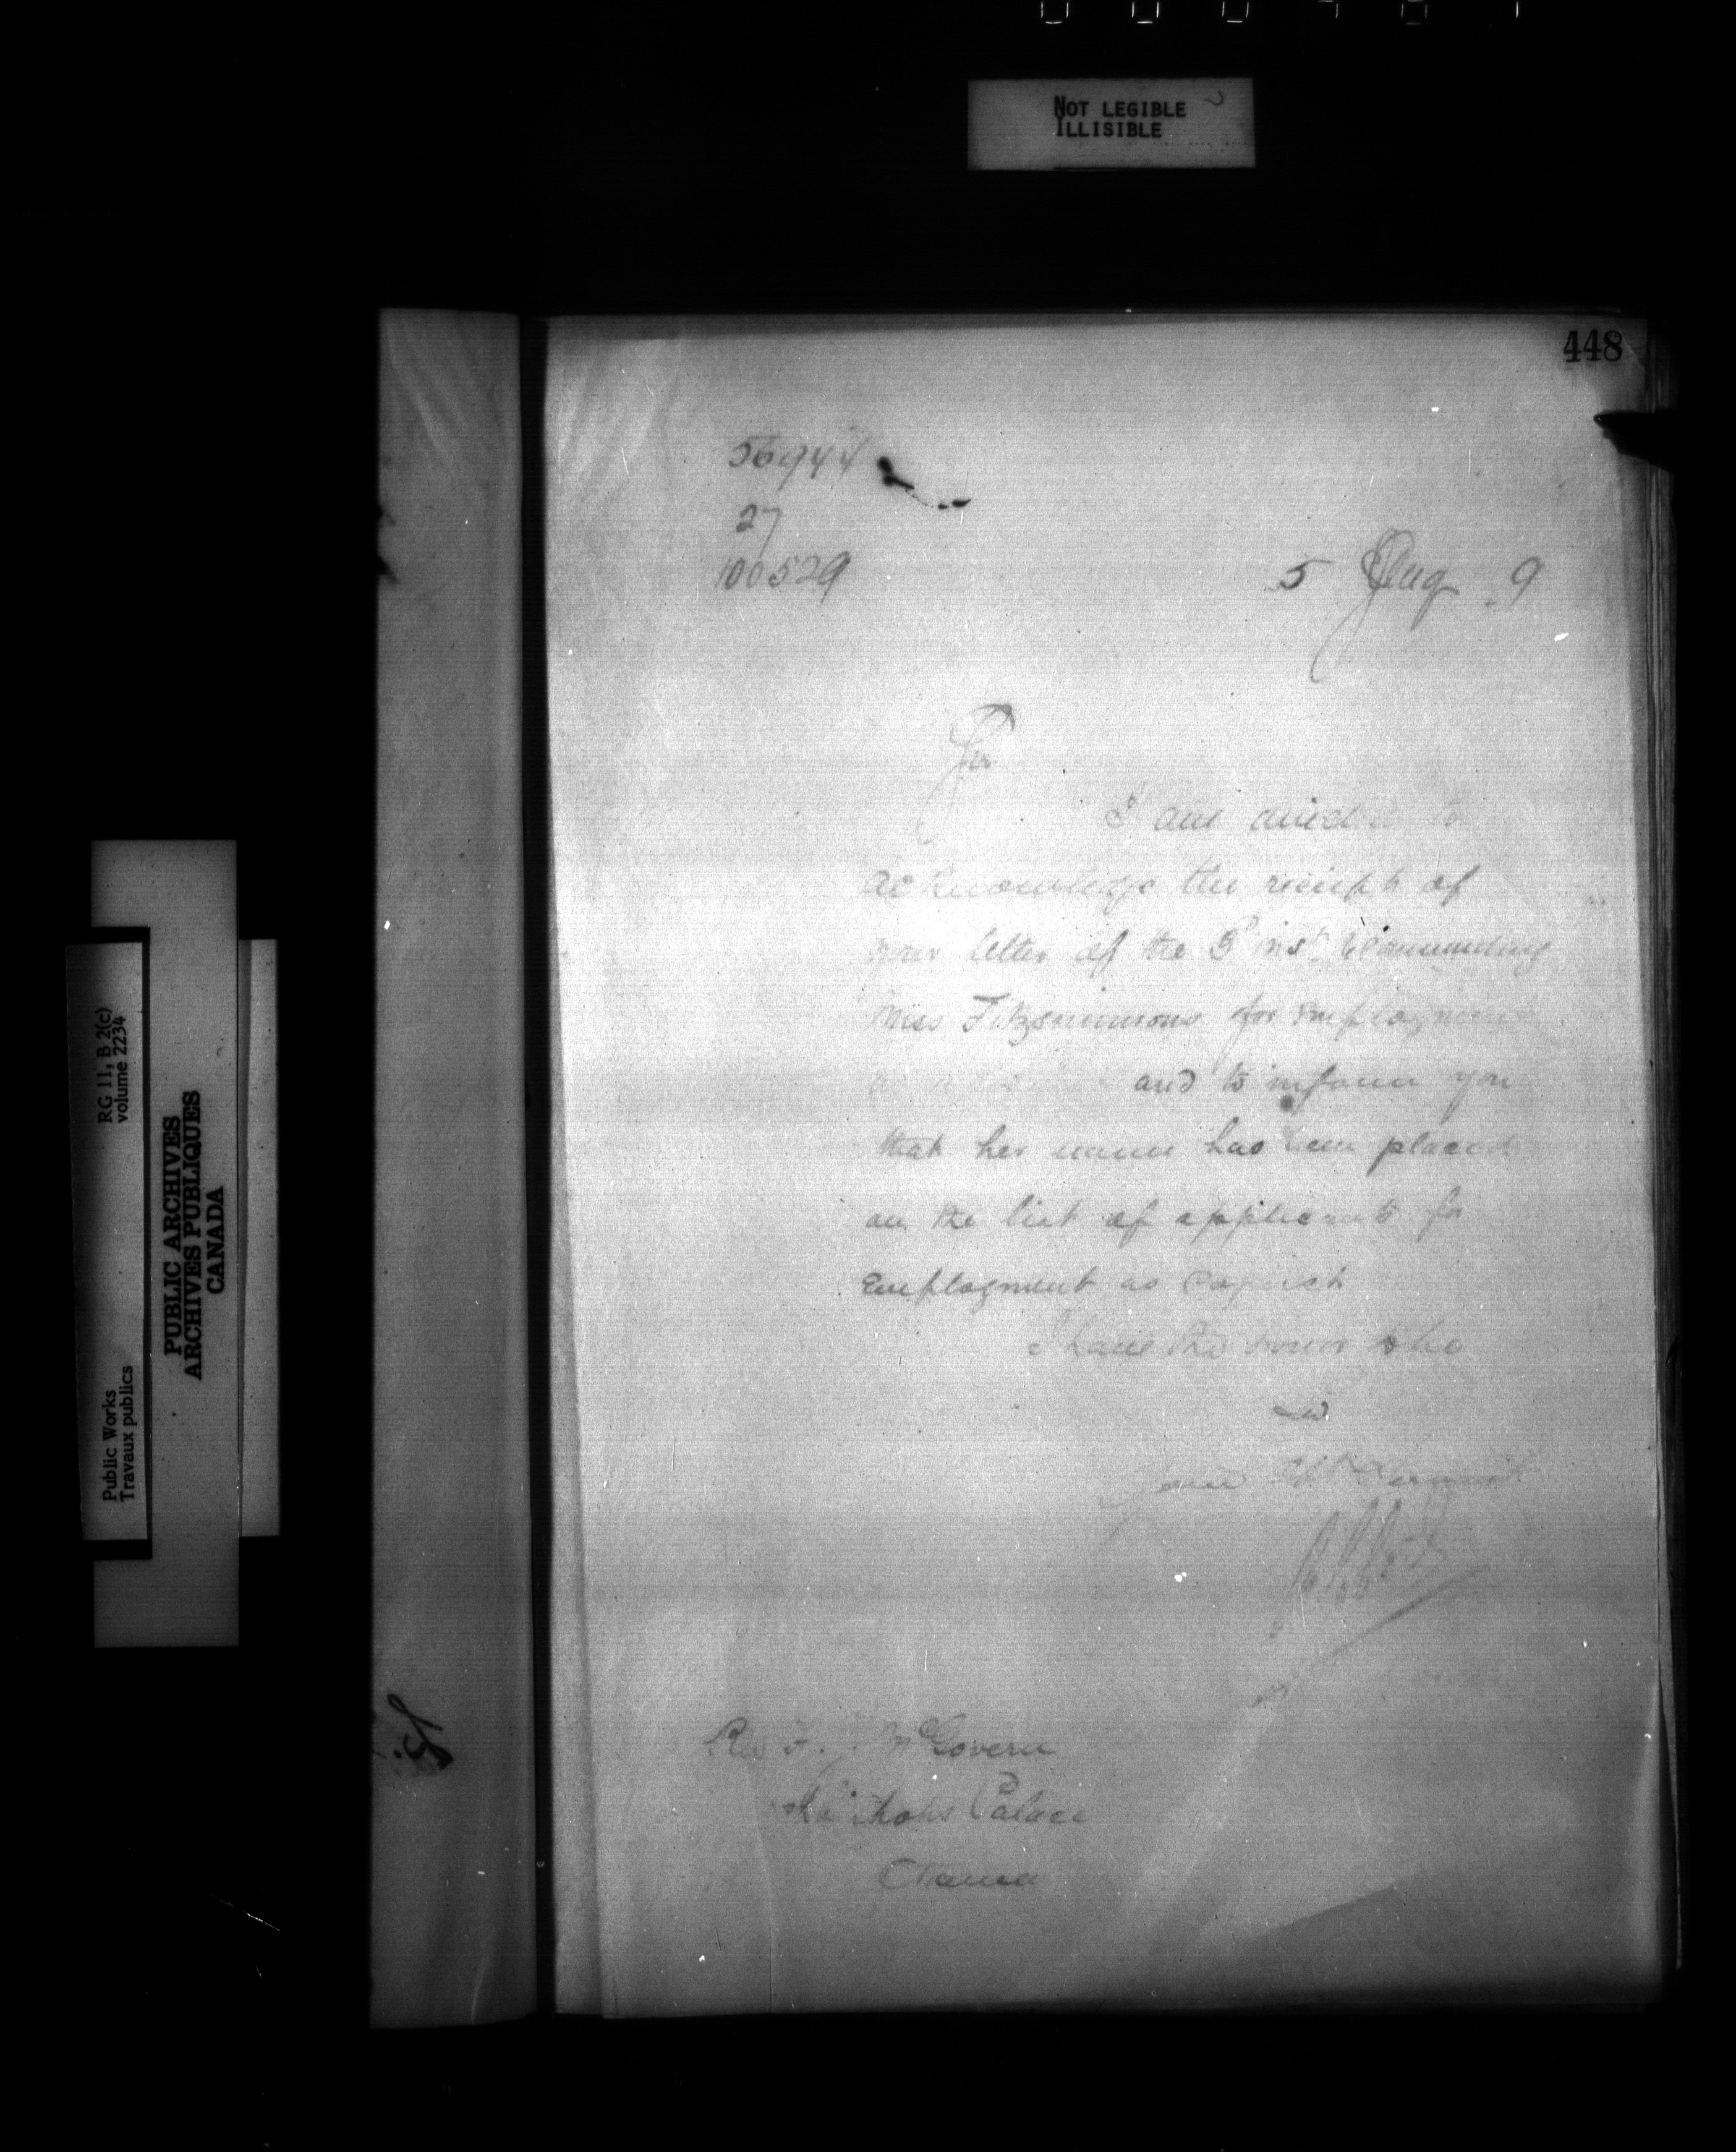 NOT LEGIBLE
ILLISIBLE
448
56944
27
100529
5 Aug 9
Sir
I am directed to
acknowledge the receipt of
your letter of the 3rd inst. recommending
Miss Fitzsimmons for employment
and to inform you
that her name has been placed
on the list of applicants for
Employment as Copyist
I have the honor to be
Sir
Your Obt Servant
Rev J. McGovern
Palace
Ottawa
RG 11, B 2(c)
volume 2234
PUBLIC ARCHIVES
ARCHIVES PUBLIQUES
CANADA
Public Works
Travaux publics